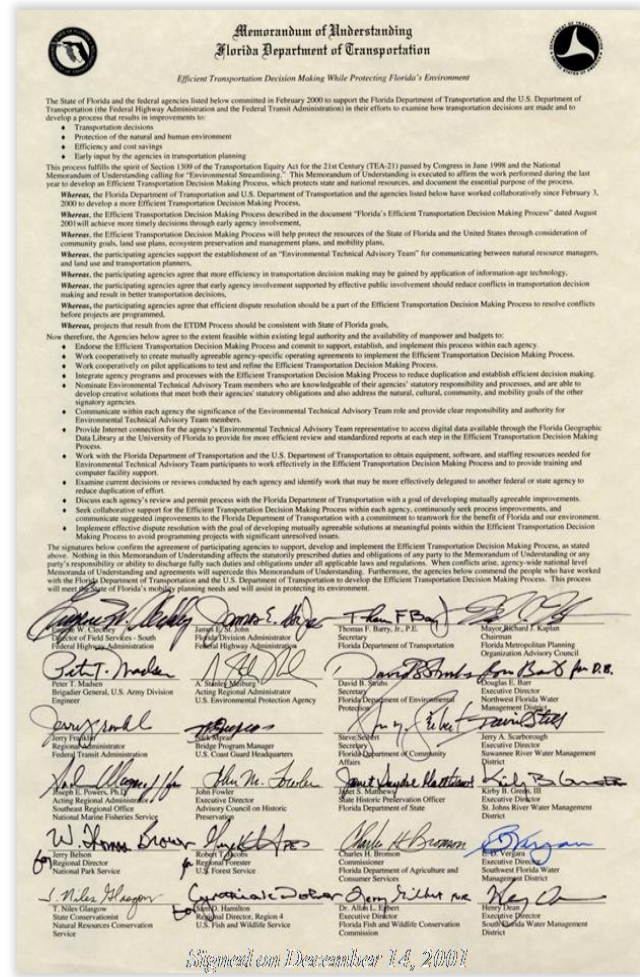 Memorandum of Understanding
Florida Department of Transportation
Efficient Transportation Decision Making While Protecting Florida's Environment
The State of Florida and the federal agencies listed below committed in February 2000 to support the Florida Department of Transportation and the U.S. Department of
Transportation (the Federal Highway Administration and the Federal Transit Administration) in their efforts to examine how transportation decisions are made and to
develop a process that results in improvements to:
♦ Transportation decisions
♦ Protection of the natural and human environment
♦ Efficiency and cost savings
♦ Early input by the agencies in transportation planning
This process fulfills the spirit of Section 1309 of the Transportation Equity Act for the 21st Century (TEA-21) passed by Congress in June 1998 and the National
Memorandum of Understanding calling for "Environmental Streamlining." This Memorandum of Understanding is executed to affirm the work performed during the last
year to develop an Efficient Transportation Decision Making Process, which protects state and national resources, and document the essential purpose of the process.
Whereas, the Florida Department of Transportation and U.S. Department of Transportation and the agencies listed below have worked collaboratively since February 3,
2000 to develop a more Efficient Transportation Decision Making Process,
Whereas, the Efficient Transportation Decision Making Process described in the document "Florida's Efficient Transportation Decision Making Process" dated August
2001will achieve more timely decisions through early agency involvement,
Whereas, the Efficient Transportation Decision Making Process will help protect the resources of the State of Florida and the United States through consideration of
community goals, land use plans, ecosystem preservation and management plans, and mobility plans,
Whereas, the participating agencies support the establishment of an "Environmental Technical Advisory Team" for communicating between natural resource managers,
and land use and transportation planners,
Whereas, the participating agencies agree that more efficiency in transportation decision making may be gained by application of information-age technology,
Whereas, the participating agencies agree that early agency involvement supported by effective public involvement should reduce conflicts in transportation decision
making and result in better transportation decisions,
Whereas, the participating agencies agree that efficient dispute resolution should be a part of the Efficient Transportation Decision Making Process to resolve conflicts
before projects are programmed,
Whereas, projects that result from the ETDM Process should be consistent with State of Florida goals,
Now therefore, the Agencies below agree to the extent feasible within existing legal authority and the availability of manpower and budgets to:
♦ Endorse the Efficient Transportation Decision Making Process and commit to support, establish, and implement this process within each agency.
♦ Work cooperatively to create mutually agreeable agency-specific operating agreements to implement the Efficient Transportation Decision Making Process.
♦ Work cooperatively on pilot applications to test and refine the Efficient Transportation Decision Making Process.
♦ Integrate agency programs and processes with the Efficient Transportation Decision Making Process to reduce duplication and establish efficient decision making.
♦ Nominate Environmental Technical Advisory Team members who are knowledgeable of their agencies' statutory responsibility and processes, and are able to
develop creative solutions that meet both their agencies' statutory obligations and also address the natural, cultural, community, and mobility goals of the other
signatory agencies.
♦ Communicate within each agency the significance of the Environmental Technical Advisory Team role and provide clear responsibility and authority for
Environmental Technical Advisory Team members.
♦ Provide Internet connection for the agency's Environmental Technical Advisory Team representative to access digital data available through the Florida Geographic
Data Library at the University of Florida to provide for more efficient review and standardized reports at each step in the Efficient Transportation Decision Making
Process.
♦ Work with the Florida Department of Transportation and the U.S. Department of Transportation to obtain equipment, software, and staffing resources needed for
Environmental Technical Advisory Team participants to work effectively in the Efficient Transportation Decision Making Process and to provide training and
computer facility support.
♦ Examine current decisions or reviews conducted by each agency and identify work that may be more effectively delegated to another federal or state agency to
reduce duplication of effort.
♦ Discuss each agency's review and permit process with the Florida Department of Transportation with a goal of developing mutually agreeable improvements.
♦ Seek collaborative support for the Efficient Transportation Decision Making Process within each agency, continuously seek process improvements, and
communicate suggested improvements to the Florida Department of Transportation with a commitment to teamwork for the benefit of Florida and our environment.
♦ Implement effective dispute resolution with the goal of developing mutually agreeable solutions at meaningful points within the Efficient Transportation Decision
Making Process to avoid programming projects with significant unresolved issues.
The signatures below confirm the agreement of participating agencies to support, develop and implement the Efficient Transportation Decision Making Process, as stated
above. Nothing in this Memorandum of Understanding affects the statutorily prescribed duties and obligations of any party to the Memorandum of Understanding or any
party's responsibility or ability to discharge fully such duties and obligations under all applicable laws and regulations. When conflicts arise, agency-wide national level
Memoranda of Understanding and agreements will supercede this Memorandum of Understanding. Furthermore, the agencies below commend the people who have worked
with the Florida Department of Transportation and the U.S. Department of Transportation to develop the Efficient Transportation Decision Making Process. This process
will meet the State of Florida's mobility planning needs and will assist in protecting its environment.
W. Cleckley James E. St. John Thomas F. Barry, Jr., P.E. Mayor Richard J. Kaplan
Director of Field Services - South Florida Division Administrator Secretary Chairman
Federal Highway Administration Federal Highway Administration Florida Department of Transportation Florida Metropolitan Planning
Organization Advisory Council
for D.B.
Peter T. Madsen A. Stanley Meiburg David B. Struhs Douglas E. Barr
Brigadier General, U.S. Army Division Acting Regional Administrator Secretary Executive Director
Engineer U.S. Environmental Protection Agency Florida Department of Environmental Northwest Florida Water
Protection Management District
Jerry Franklin Nick Mpras Steve Seibert Jerry A. Scarborough
Regional Administrator Bridge Program Manager Secretary Executive Director
Federal Transit Administration U.S. Coast Guard Headquarters Florida Department of Community Suwannee River Water Management
Affairs District
Joseph E. Powers, Ph.D. John Fowler Janet S. Matthews Kirby B. Green, III
Acting Regional Administrator Executive Director State Historic Preservation Officer Executive Director
Southeast Regional Office Advisory Council on Historic Florida Department of State St. Johns River Water Management
National Marine Fisheries Service Preservation District
W. Thomas Brown
for Jerry Belson Robert T. Jacobs Charles H. Bronson Vergara
Regional Director Regional Forester Commissioner Executive Director
National Park Service U.S. Forest Service Florida Department of Agriculture and Southwest Florida Water
Consumer Services Management District
T. Niles Glasgow Sam D. Hamilton Dr. Allan L. Egbert Henry Dean
State Conservationist Regional Director, Region 4 Executive Director Executive Director
Natural Resources Conservation U.S. Fish and Wildlife Service Florida Fish and Wildlife Conservation South Florida Water Management
Service Commission District
Signed on December 14, 2001